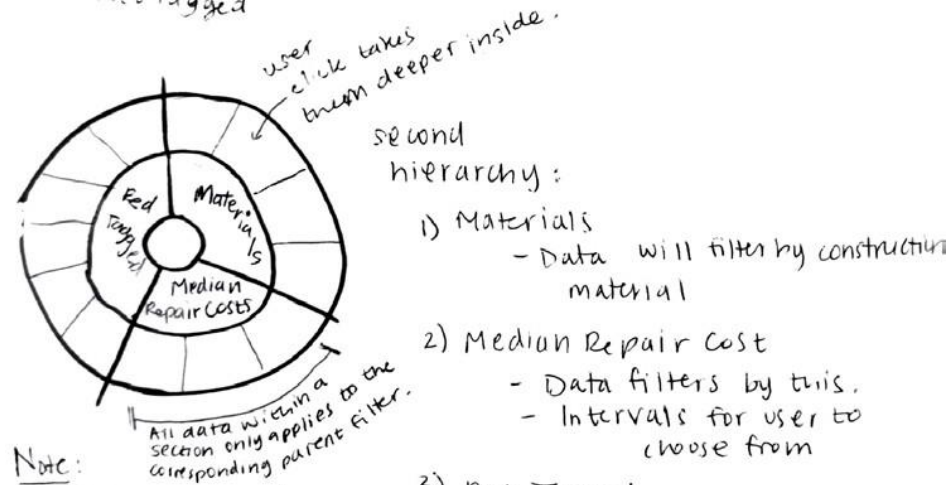 user
click takes
them deeper inside.
Red
Tagged
Materials
Median
Repair Costs
All data within a
section only applies to the
corresponding parent filter.
Note:
second
hierarchy:
1) Materials
- Data will filter by construction
material
2) Median Repair Cost
- Data filters by this.
- Intervals for user to
choose from